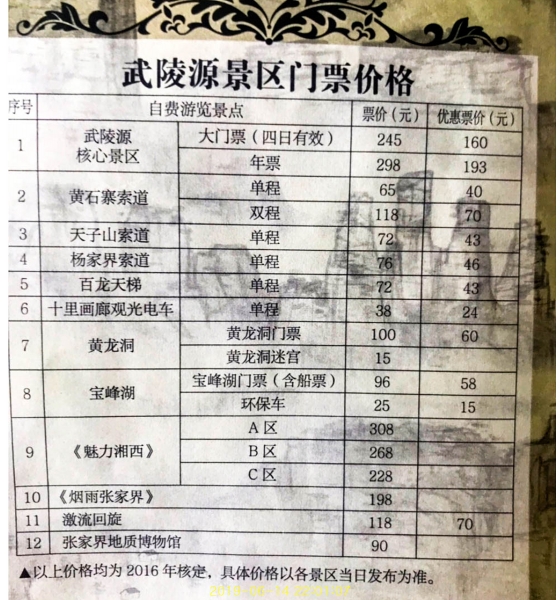 武陵源景区门票价格
序号 自费游览景点 票价（元） 优惠票价（元）
1 武陵源核心景区 大门票（四日有效） 245 160
年票 298 193
2 黄石寨索道 单程 65 40
双程 118 70
3 天子山索道 单程 72 43
4 杨家界索道 单程 76 46
5 百龙天梯 单程 72 43
6 十里画廊观光电车 单程 38 24
7 黄龙洞 黄龙洞门票 100 60
黄龙洞迷宫 15
8 宝峰湖 宝峰湖门票（含船票） 96 58
环保车 25 15
9 《魅力湘西》 A 区 308
B 区 268
C 区 228
10 《烟雨张家界》 198
11 激流回旋 118 70
12 张家界地质博物馆 90
▲以上价格均为 2016 年核定，具体价格以各景区当日发布为准。